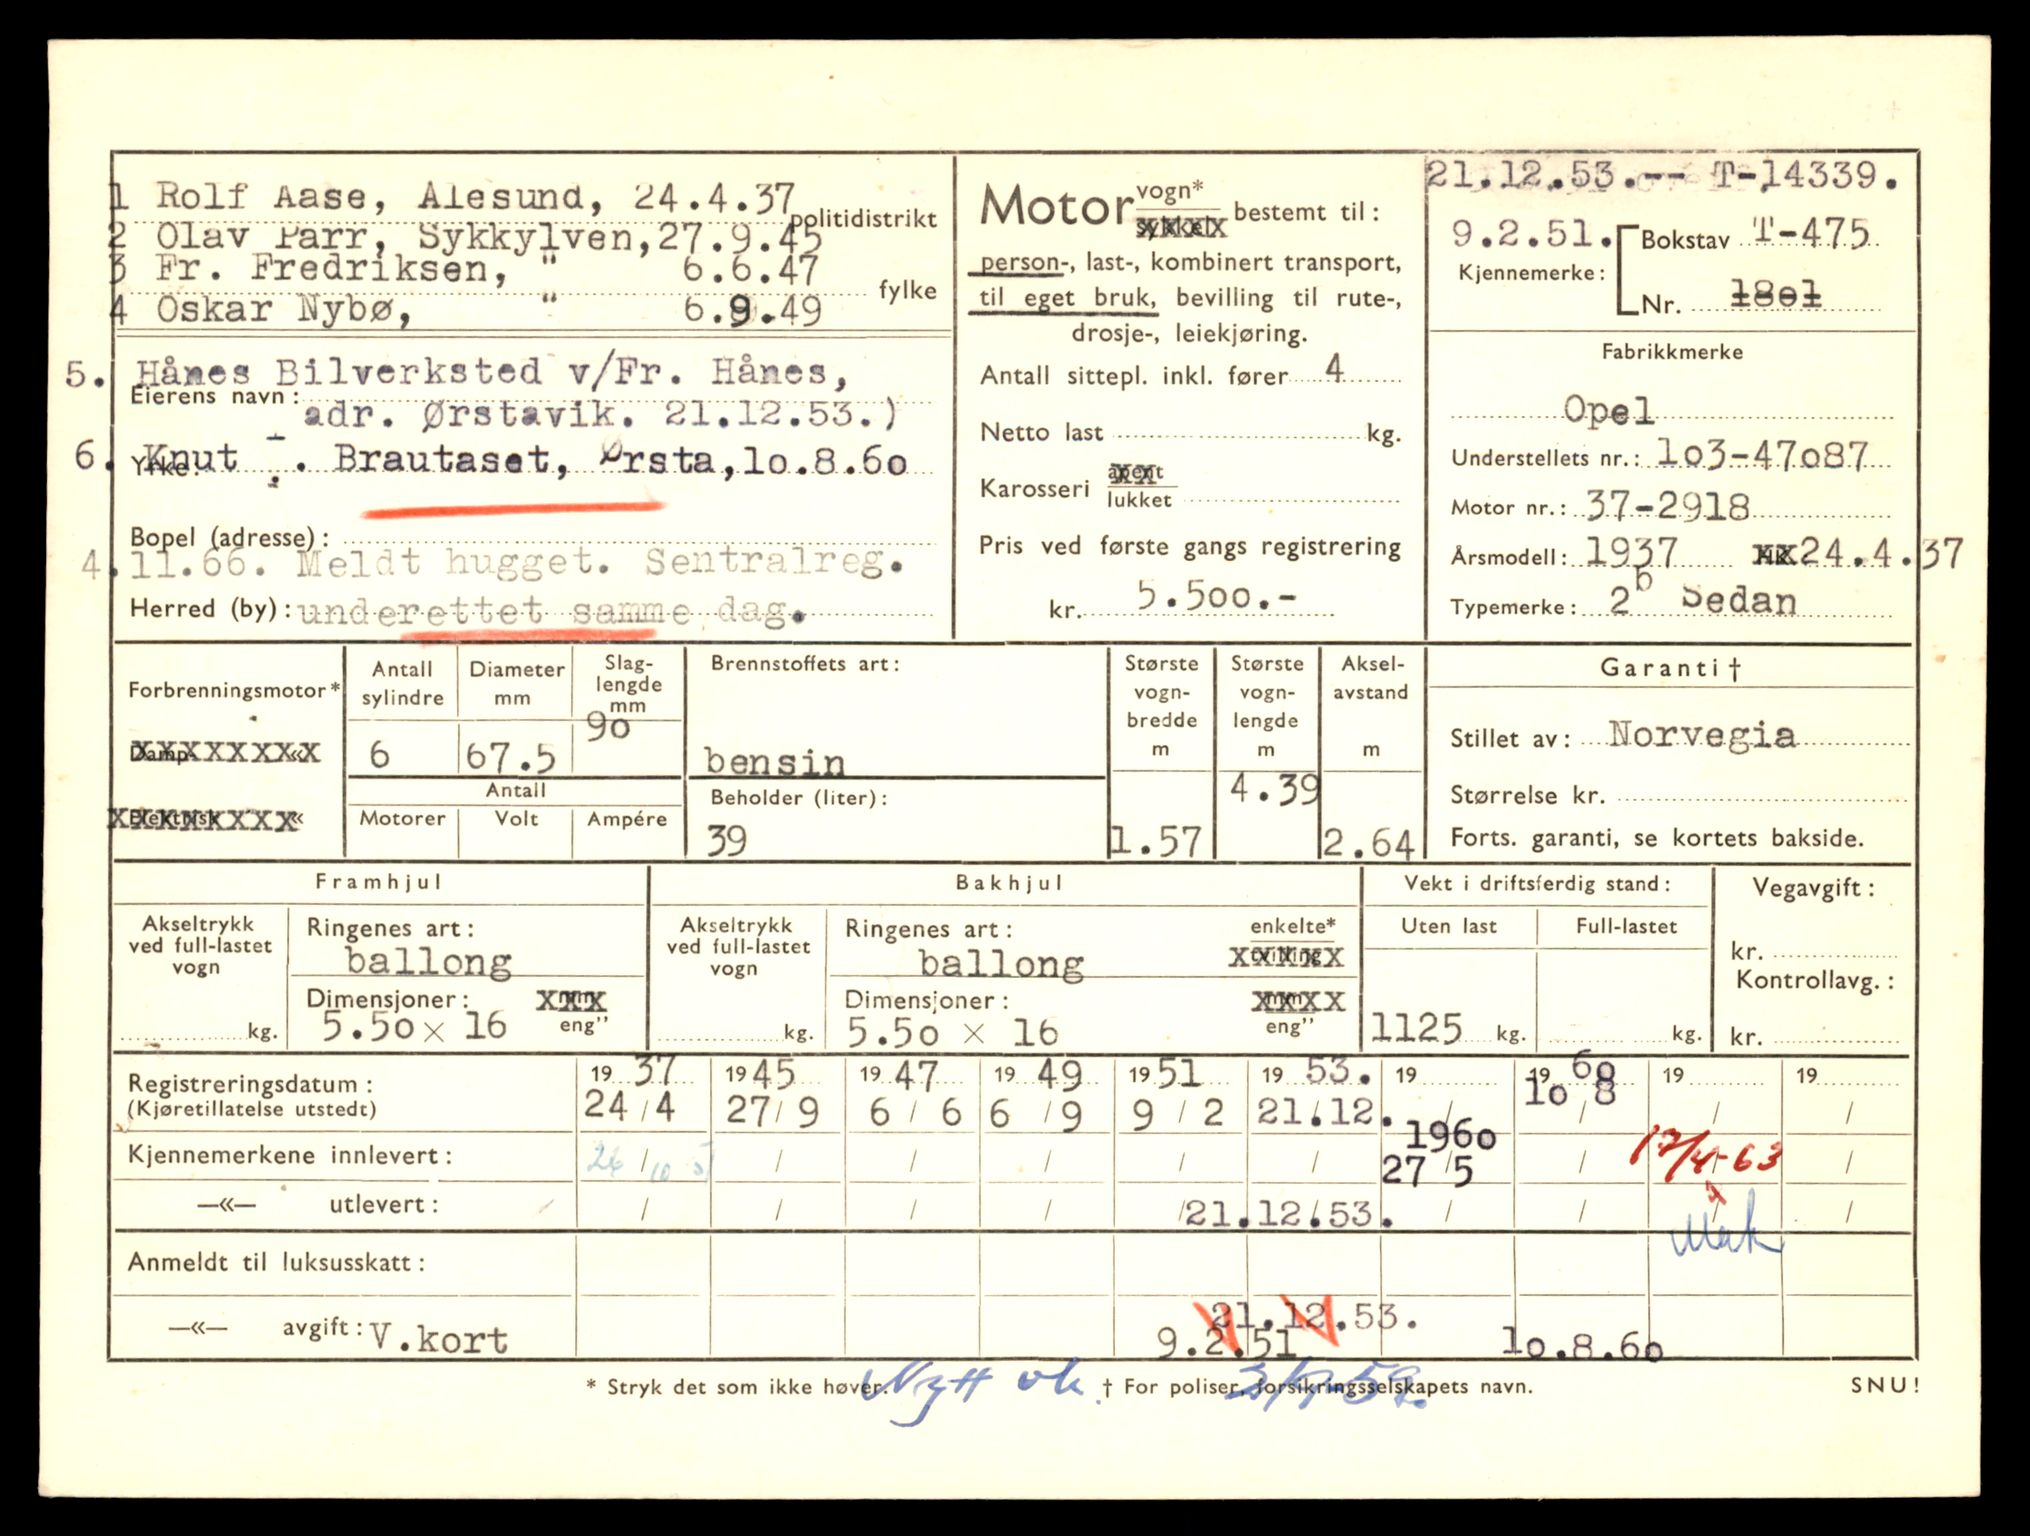 1 Rolf Aase, Ålesund, 24.4.37
politidistrikt
2 Olav Parr, Sykkylven,27.9.45
3 Fr. Fredriksen, " 6.6.47
fylke
4 Oskar Nybø, " 6.9.49
5. Hånes Bilverksted v/Fr. Hånes,
Eierens navn:
adr. Ørstavik. 21.12.53.)
6. Knut . Brautaset, Ørsta,10.8.60
Yrke:
Bopel (adresse):
4.11.66. Meldt hugget. Sentralreg.
Herred (by): underettet samme dag.
Motor vogn*
sykkel
bestemt til:
person-, last-, kombinert transport,
til eget bruk, bevilling til rute-,
drosje-, leiekjøring.
Antall sittepl. inkl. fører 4
Netto last kg.
Karosseri åpent
lukket
Pris ved første gangs registrering
kr. 5.500.-
21.12.53.-- T-14339.
9.2.51. Bokstav T-475
Kjennemerke:
Nr. 1801
Fabrikkmerke
Opel
Understellets nr.: 103-47087
Motor nr.: 37-2918
Årsmodell: 1937 24.4.37
Typemerke: 2b Sedan
Forbrenningsmotor*
Damp- «
Elektrisk «
Antall sylindre
6
Diameter mm
67.5
Slag-lengde mm
90
Antall
Motorer Volt Ampére
Brennstoffets art:
bensin
Beholder (liter):
39
Største vogn-bredde m
1.57
Største vogn-lengde m
4.39
Aksel-avstand m
2.64
Garanti †
Stillet av: Norvegia
Størrelse kr.
Forts. garanti, se kortets bakside.
Framhjul
Akseltrykk ved full-lastet vogn
kg.
Ringenes art:
ballong
Dimensjoner: mm
5.50 x 16 eng"
Bakhjul
Akseltrykk ved full-lastet vogn
kg.
Ringenes art: enkelte*
ballong tvilling
Dimensjoner: mm
5.50 x 16 eng"
Vekt i driftsferdig stand:
Uten last Full-lastet
1125 kg. kg.
Vegavgift:
kr.
Kontrollavg.:
kr.
Registreringsdatum: 19 37 19 45 19 47 19 49 19 51 19 53. 19 19 60 19 19
(Kjøretillatelse utstedt) 24/4 27/9 6/6 6/9 9/2 21.12. / 10/8 / /
1960
Kjennemerkene innlevert: / / / / / 27/5 / 17/4-63 /
—«— utlevert: / / / / / 21.12.53. / / / /
Anmeldt til luksusskatt:
21.12.53.
—«— avgift: V.kort 9.2.51 10.8.60
* Stryk det som ikke høver. Nytt vk. † For poliser, forsikringsselskapets navn. SNU!